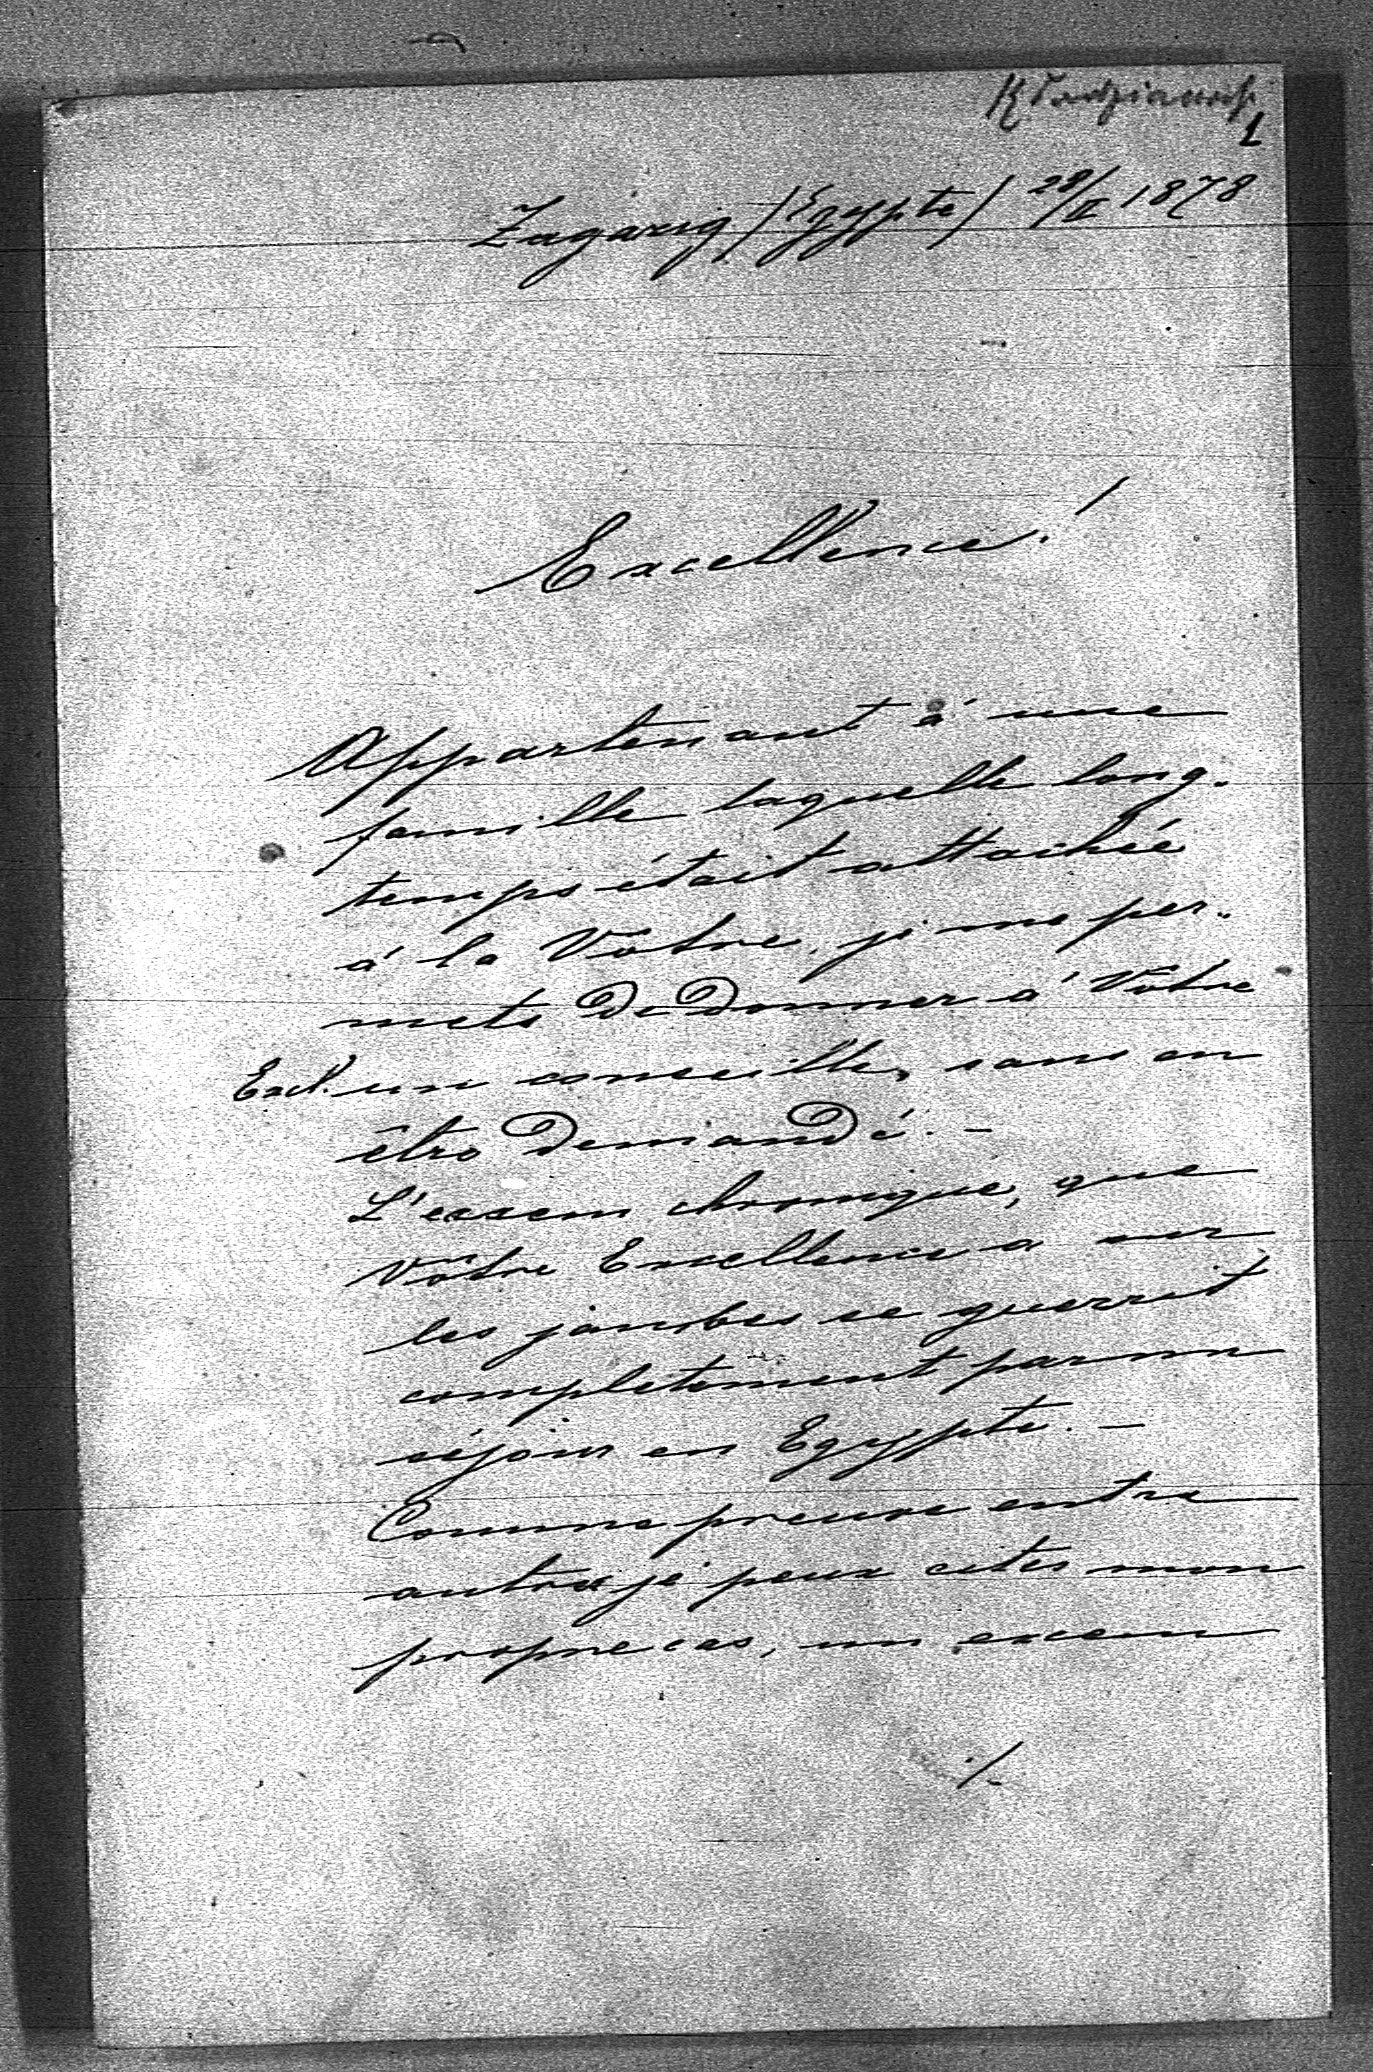 1
Zagazig /Egypte/ 28/II 1878
Excellence!
Appartenant á une
famille laquelle long-
temps était attachée
á la Votre, je me per-
mets de donner a' Votre
Excll. un conseille, sans en
être demandé. —
L'excem chronique, que
Votre Excellence a sur
les jambes se guerrit
completement par un
séjour en Egypte. —
Comme preuve entre
autres je peux citer mon
propre cas, un excem
./.